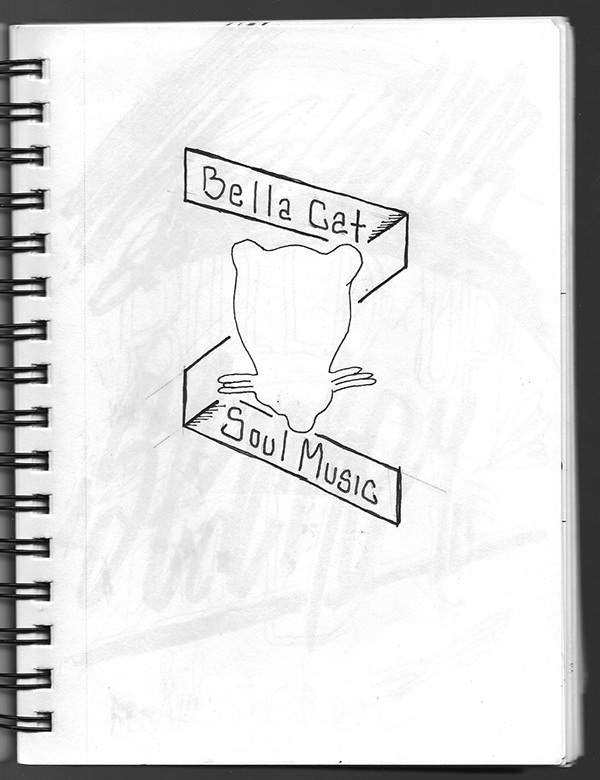 Bella Cat
Soul Music